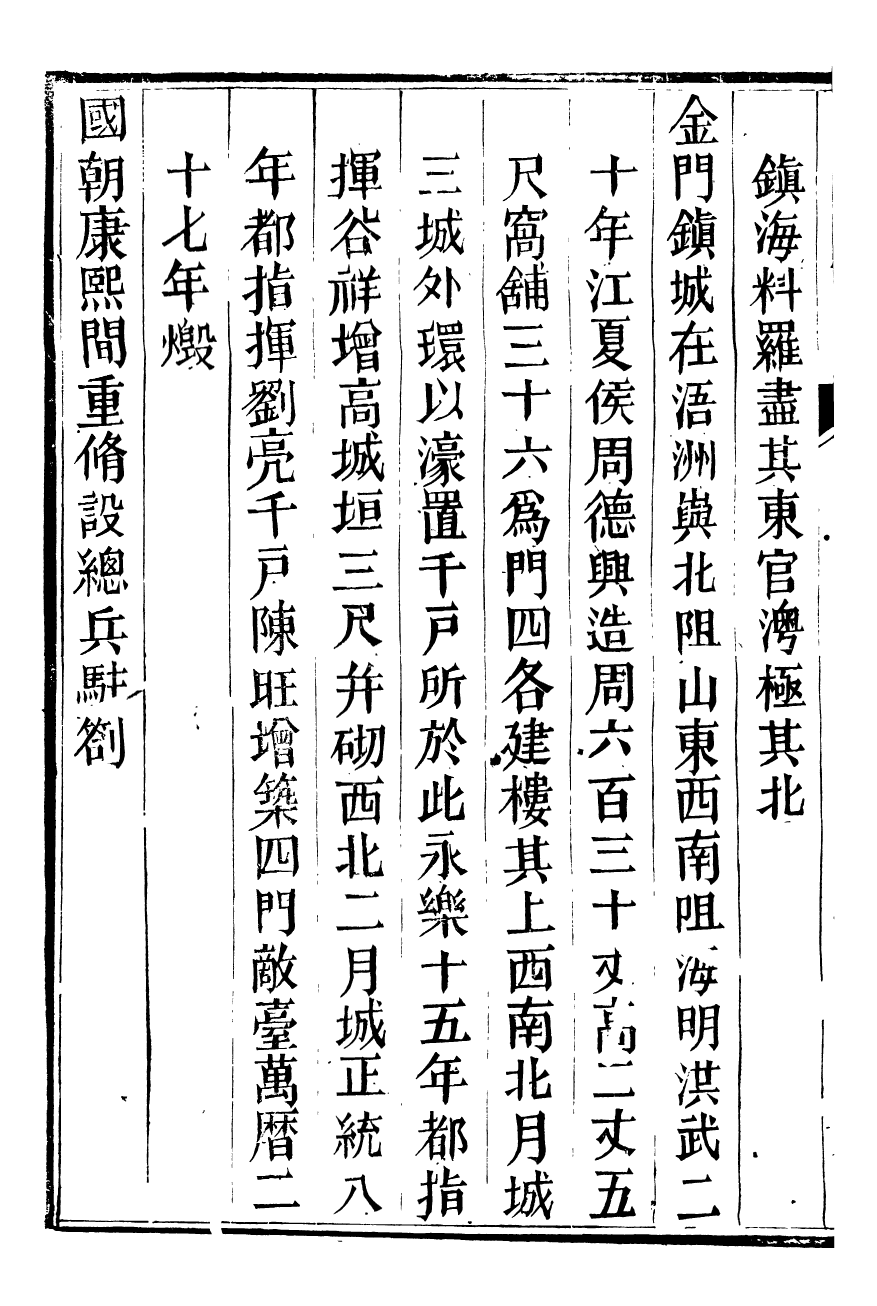 鎮海料羅盡其東官澚極其北
金門鎮城在浯洲與北阻山東西南阻海明洪武二
十年江夏侯周德興造周六百三十丈高二丈五
尺窩舖三十六爲門四各建樓其上西南北月城
三城外環以濠置千戸所於此永樂十五年都指
揮谷祥增高城垣三尺幷砌西北二月城正統八
年都指揮劉亮千戸陳旺增築四門敵臺萬曆二
十七年燬
國朝康熙間重脩設總兵駐劄